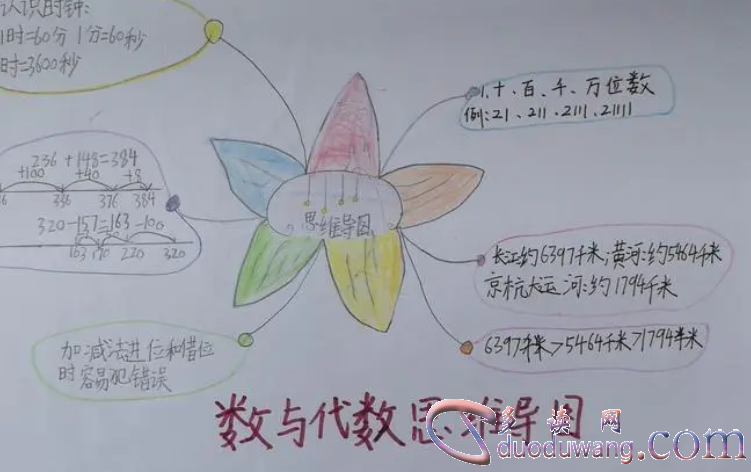 认识时钟:
1时=60分 1分=60秒
时=3600秒
1、十、百、千、万位数
例:21、211、2111、21111
236+148=384
+100 +40 +8
336 376 384
320-157=163 -100
163 170 220 320
思维导图
长江约6397千米;黄河:约5464千米
京杭大运河:约1794千米
6397千米>5464千米>1794千米
加减法进位和借位
时容易犯错误
数与代数思维导图
多读网
duoduwang.com